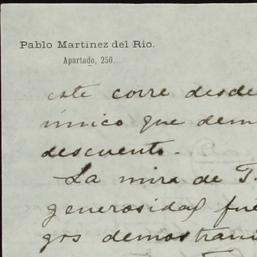 Pablo Martinez del Rio.
Apartado, 250.
este corre desde
único que dem
descuento.-
La mira de T.
generosidad fue
gos demostran